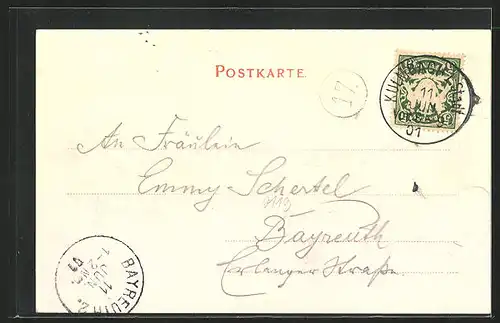 POSTKARTE.
17.
KULMBACH
11
JUN
01
An Fräulein
Emmy Schertel
Bayreuth
Erlanger Straße
BAYREUTH 2.
11
JUN
01